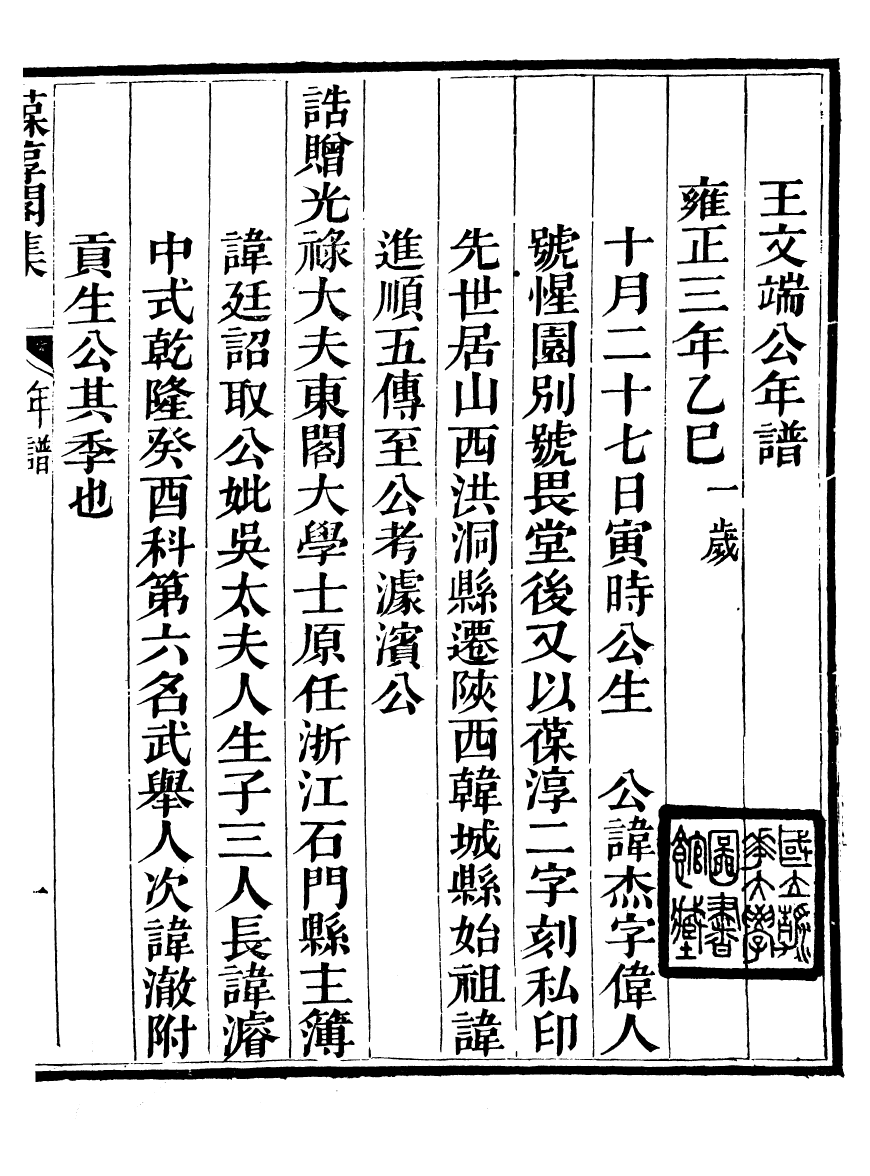 王文端公年譜
雍正三年乙巳一歲
十月二十七日寅時公生　公諱杰字偉人
號惺園別號畏堂後又以葆淳二字刻私印
先世居山西洪洞縣遷陝西韓城縣始祖諱
進順五傳至公考濂濱公
誥贈光祿大夫東閣大學士原任浙江石門縣主簿
諱廷詔取公妣吳太夫人生子三人長諱濬
中式乾隆癸酉科第六名武舉人次諱澈附
貢生公其季也
葆淳閣集
年譜
一
國立清
華大學
圖書
館藏